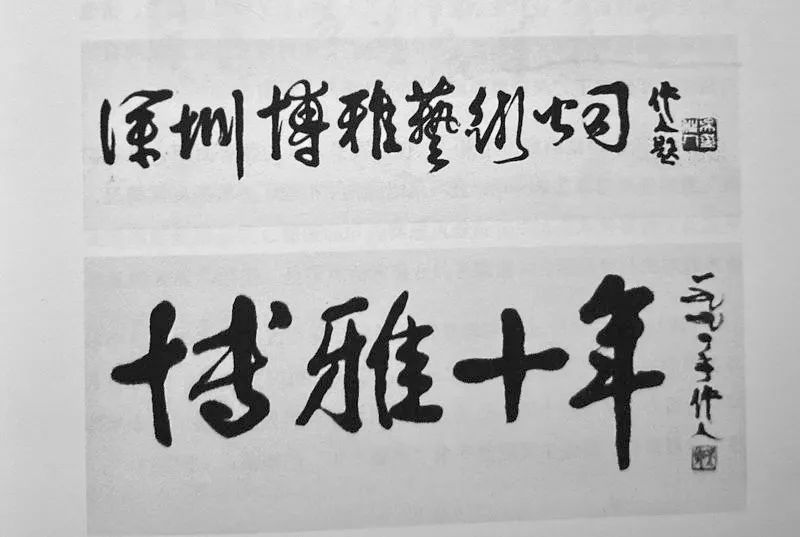 深圳博雅藝術公司
作人題
博雅十年
一九九〇年作人